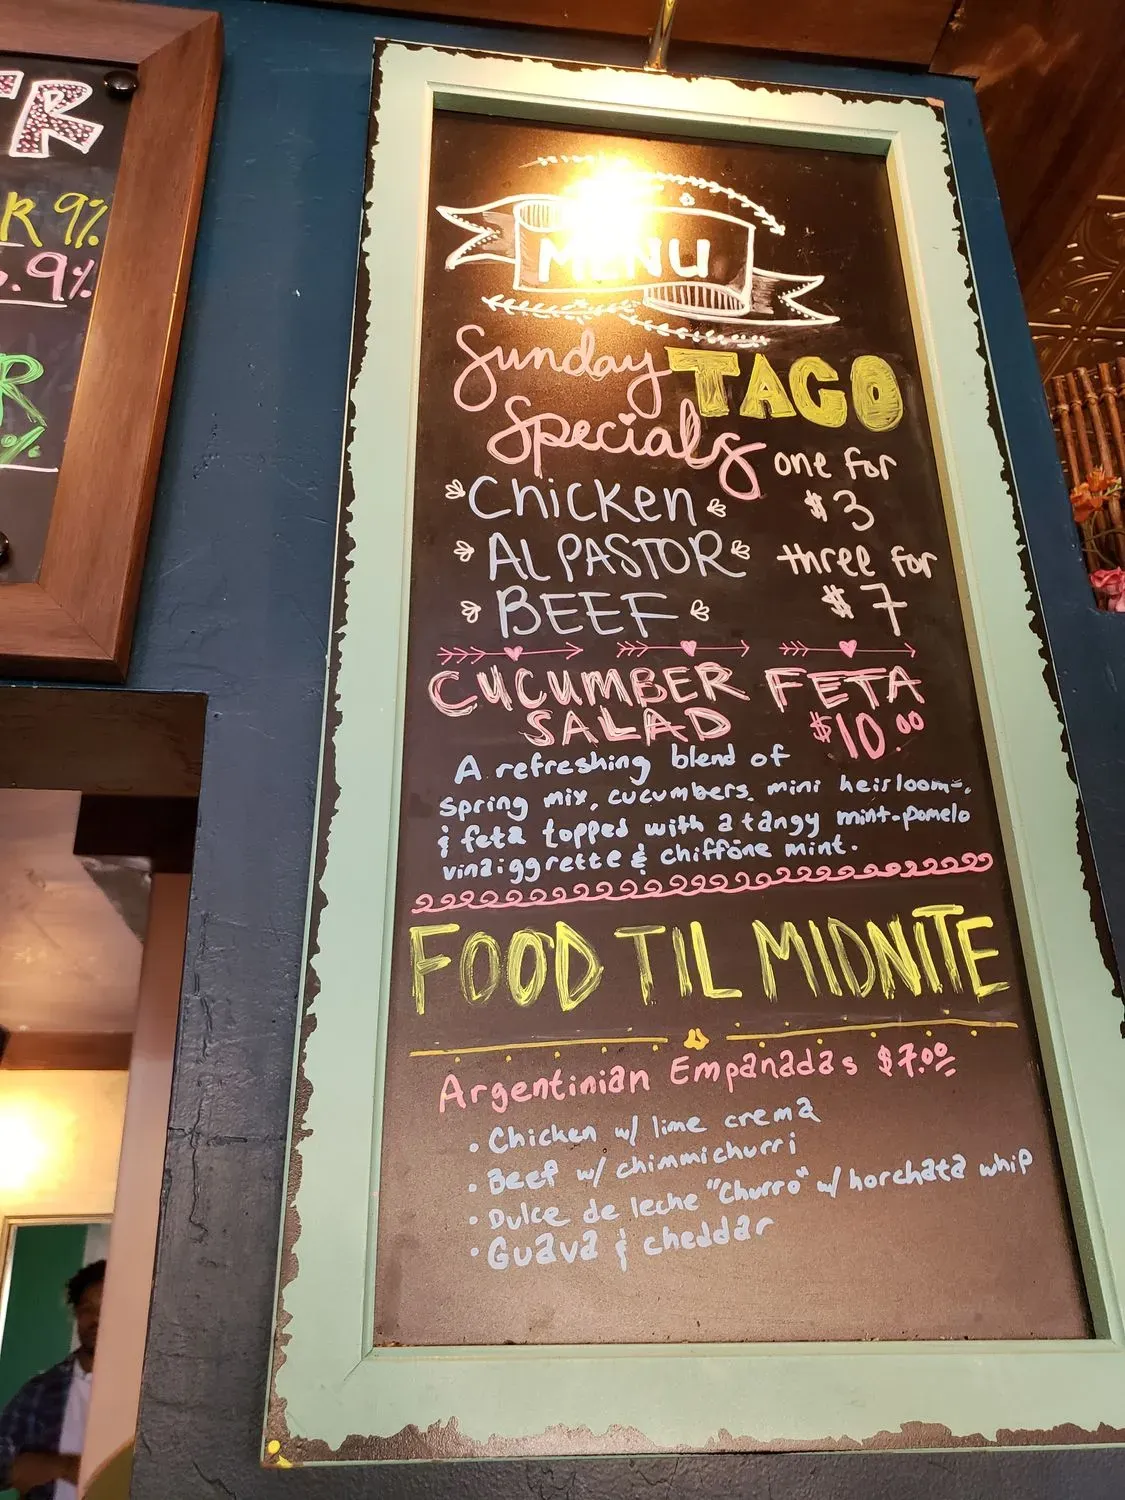 R 9%
.9%
R
%
MENU
Sunday TACO
Specials
one for
$3
Chicken
AL PASTOR
three for
$7
BEEF
CUCUMBER FETA
SALAD $10.00
A refreshing blend of
spring mix, cucumbers, mini heirloom,
& feta topped with a tangy mint-pomelo
vinaiggrette & chiffone mint.
FOOD TIL MIDNITE
Argentinian Empanadas $7.00
• Chicken w/ lime crema
• Beef w/ chimmichurri
• Dulce de leche "churro" w/ horchata whip
• Guava & cheddar